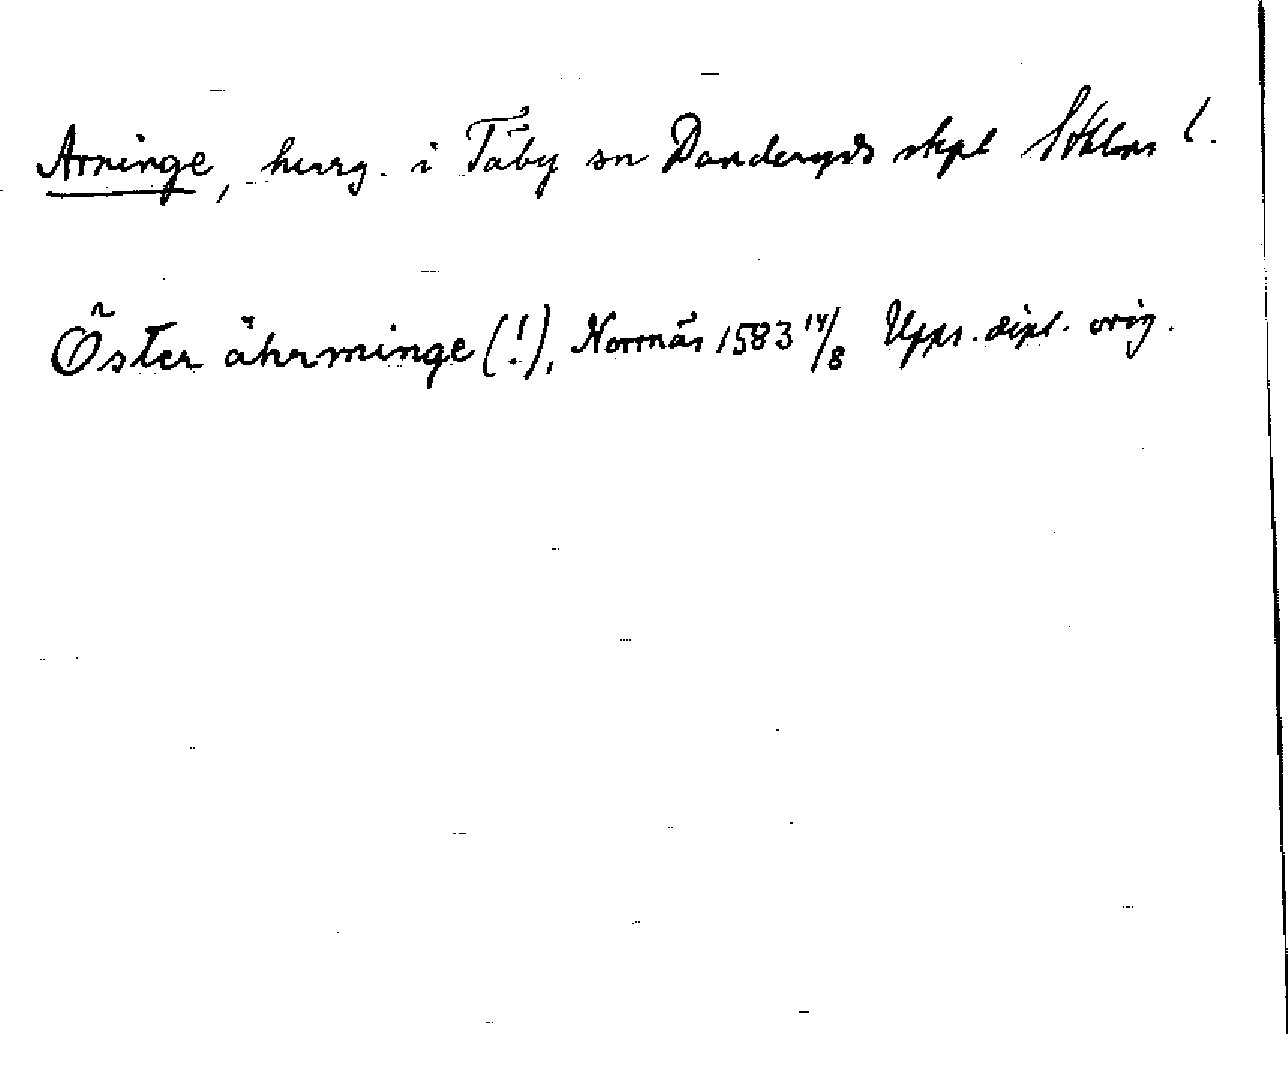 Arninge, herrg. i Täby sn Danderyds skpl Sthlms l.
Öster ährminge (!), Norrnäs 1583 14/8 Upps. dipl. orig.